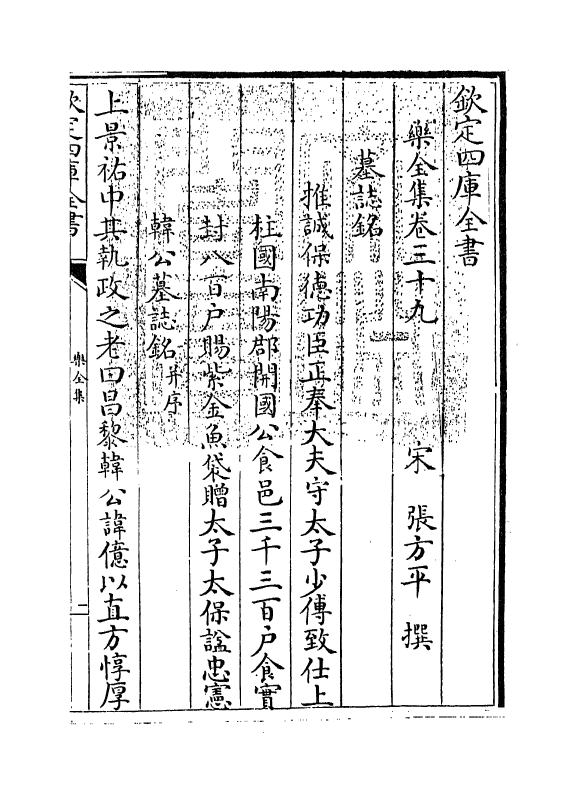 欽定四庫全書
樂全集卷三十九　宋　張方平　撰
墓誌銘
推誠保德功臣正奉大夫守太子少傅致仕上
柱國南陽郡開國公食邑三千三百户食實
封八百户賜紫金魚袋贈太子太保諡忠憲
韓公墓誌銘并序
上景祐中其執政之老曰昌黎韓公諱億以直方惇厚
欽定四庫全書
樂全集